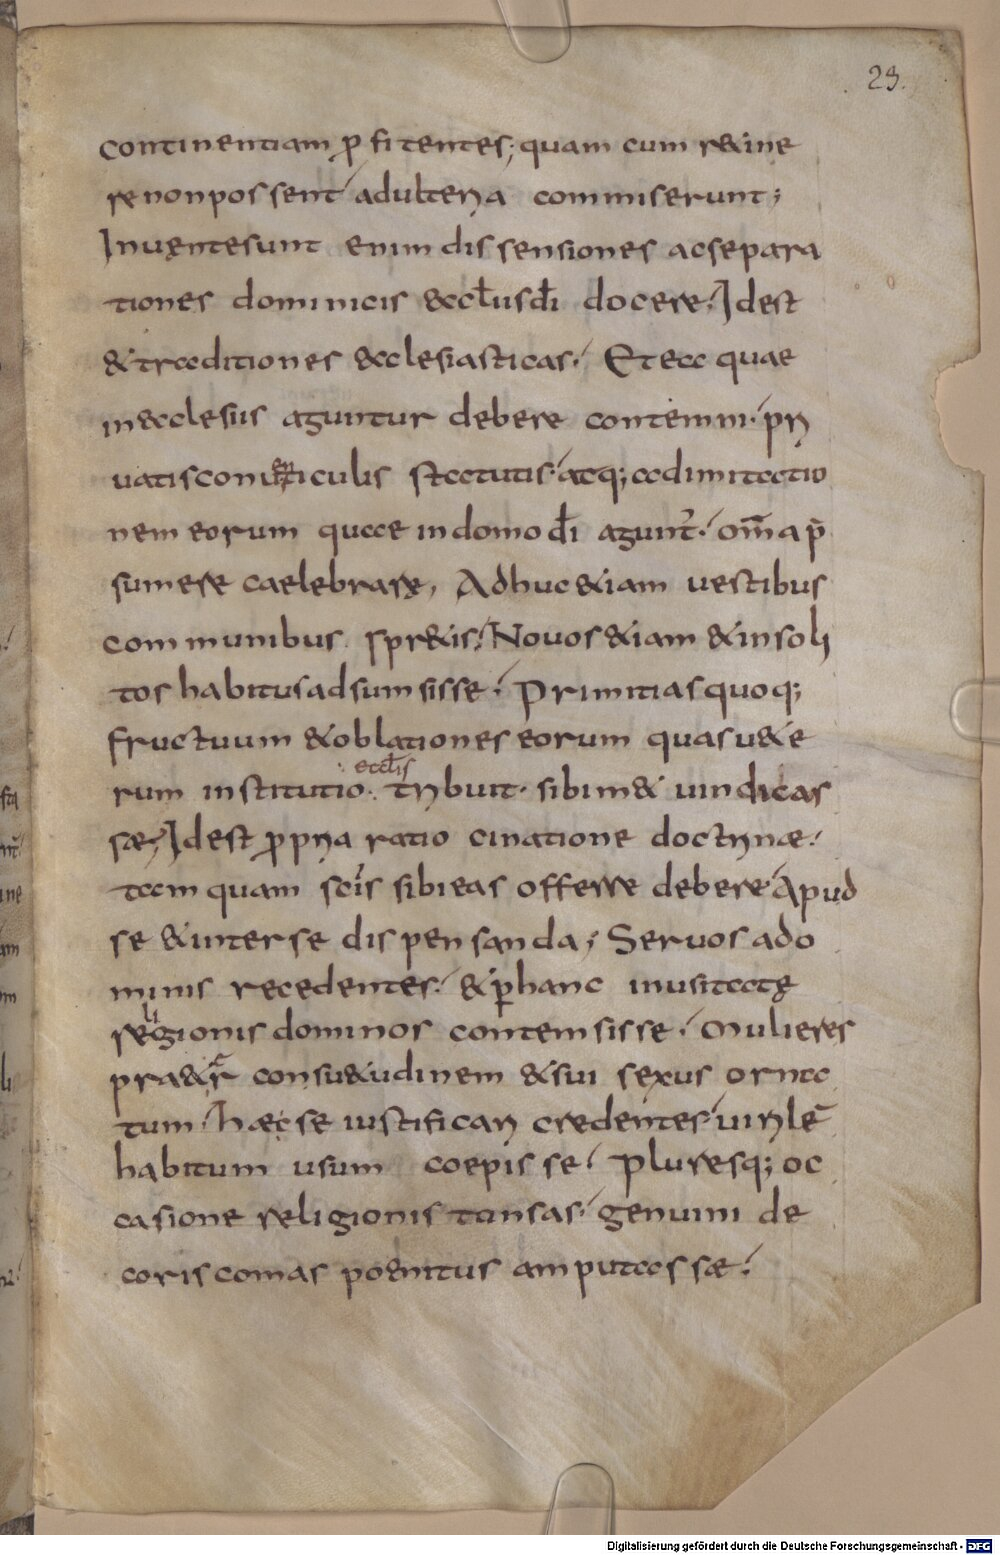 23.
continentiam p̄fitentes; quam cum r&ine
re non possent adulteria commiserunt;
Inuęnte sunt enim dissensiones ac separa
tiones dominicis &ccl̄iis dī docere. Id est
& traditiones &cclesiasticas. Et ea quae
in &cclesiis aguntur debere contemni. pri
uatis conuenticulis statutis. atq; ad imitatio
nem eorum quae in domo dī agunt̄. om̄a p̄
sumere caelebrarę, Adhuc &iam uestibus
communibus spr&is. Nouos &iam & insoli
tos habitus adsumsisse. Primitias quoq;
fructuum & oblationes eorum quas u&e
rum institutio eccl̄is tribuit. sibim& uindicas
sæ; Id est p̄pria ratiocinatione doctrinæ.
tam quam sc̄is sibi eas offerre debere. Apud
se & inter se dispensanda; Seruos a do
minis recedentes. & p̄ hanc inusitatę
religionis dominos contemsisse. Mulieres
pr&er̄ consu&udinem & sui sexus orna
tum. hæc se iustificari credentes. uirilē
habitum usum coepisse. Pluresq; oc
casione religionis tonsas. genuini de
coris comas poenitus amputassæ.
Digitalisierung gefördert durch die Deutsche Forschungsgemeinschaft - DFG